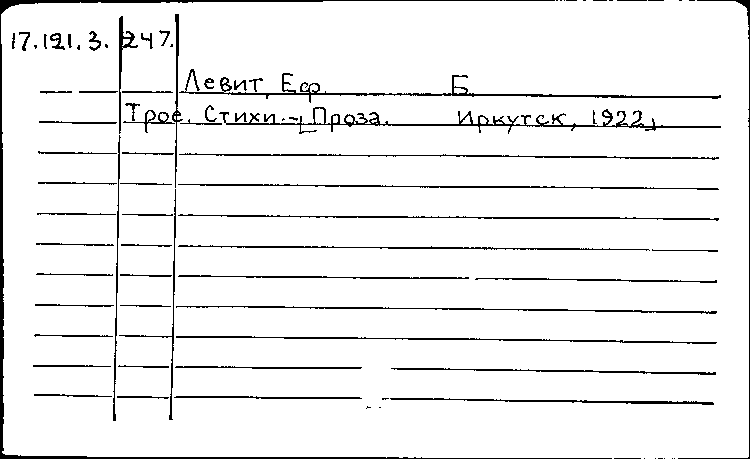 17.121.3. 247.
Левит, Еф. Б.
Трое. Стихи. - Проза. Иркутск, 1922.